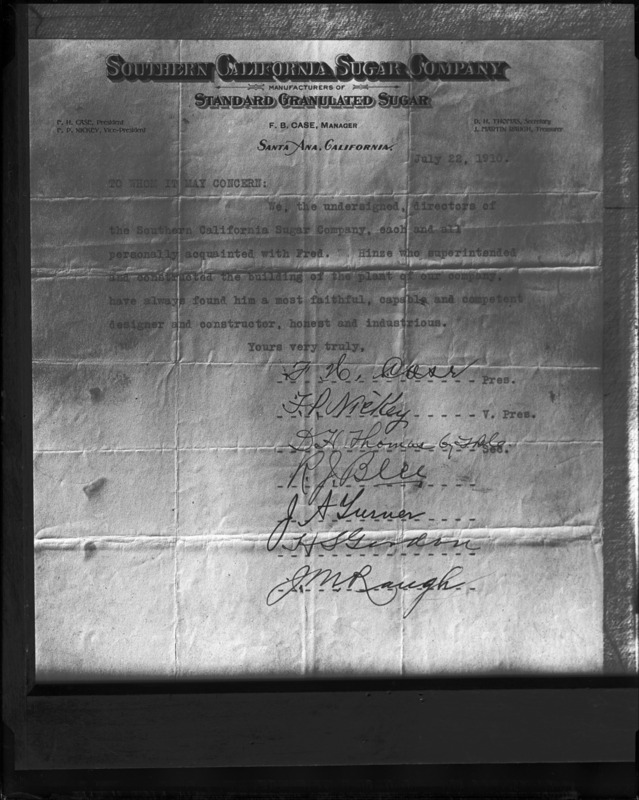 SOUTHERN CALIFORNIA SUGAR COMPANY
MANUFACTURERS OF
STANDARD GRANULATED SUGAR
F. H. CASE, President
F. P. NICKEY, Vice-President
F. B. CASE, MANAGER
D. H. THOMAS, Secretary
J. MARTIN RAUGH, Treasurer
SANTA ANA, CALIFORNIA.
July 22, 1910.
TO WHOM IT MAY CONCERN:
We, the undersigned, directors of
the Southern California Sugar Company, each and all
personally acquainted with Fred. Hinze who superintended
and constructed the building of the plant of our company,
have always found him a most faithful, capable and competent
designer and constructor, honest and industrious.
Yours very truly,
F. H. Case Pres.
F. P. Nickey V. Pres.
D H Thomas Sec.
R. J.
J A Turner
H S
J. M Raugh